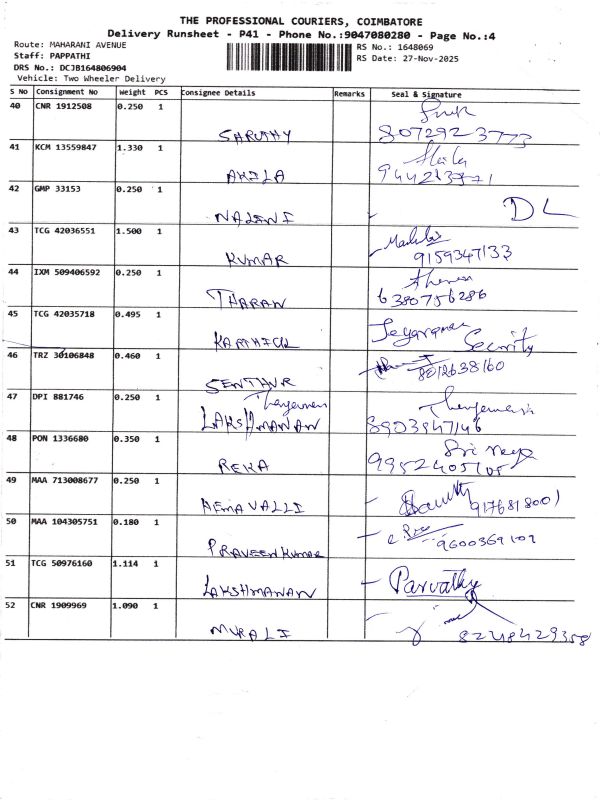 THE PROFESSIONAL COURIERS, COIMBATORE
Delivery Runsheet - P41 - Phone No.:9047080280 - Page No.:4
Route: MAHARANI AVENUE
RS No.: 1648069
Staff: PAPPATHI
RS Date: 27-Nov-2025
DRS No.: DCJB164806904
Vehicle: Two Wheeler Delivery
S No Consignment No Weight PCS Consignee Details Remarks Seal & Signature
40 CNR 1912508 0.250 1
SARUTHY 8072923773
41 KCM 13559847 1.330 1
AKILA
42 GMP 33153 0.250 1
NALINI DL
43 TCG 42036551 1.500 1
KUMAR 9159347133
44 IXM 509406592 0.250 1
THARAN 6380756286
45 TCG 42035718 0.495 1
KARTHICK Security
46 TRZ 30106848 0.460 1
SENTHUR 8012638160
47 DPI 881746 0.250 1
LAKSHMANAN 8903847146
48 PON 1336680 0.350 1
REKA 9952405105
49 MAA 713008677 0.250 1
HEMAVALLI 9176818001
50 MAA 104305751 0.180 1
PRAVEEN KUMAR 9600369109
51 TCG 50976160 1.114 1
LAKSHMANAN Parvathy
52 CNR 1909969 1.090 1
MURALI